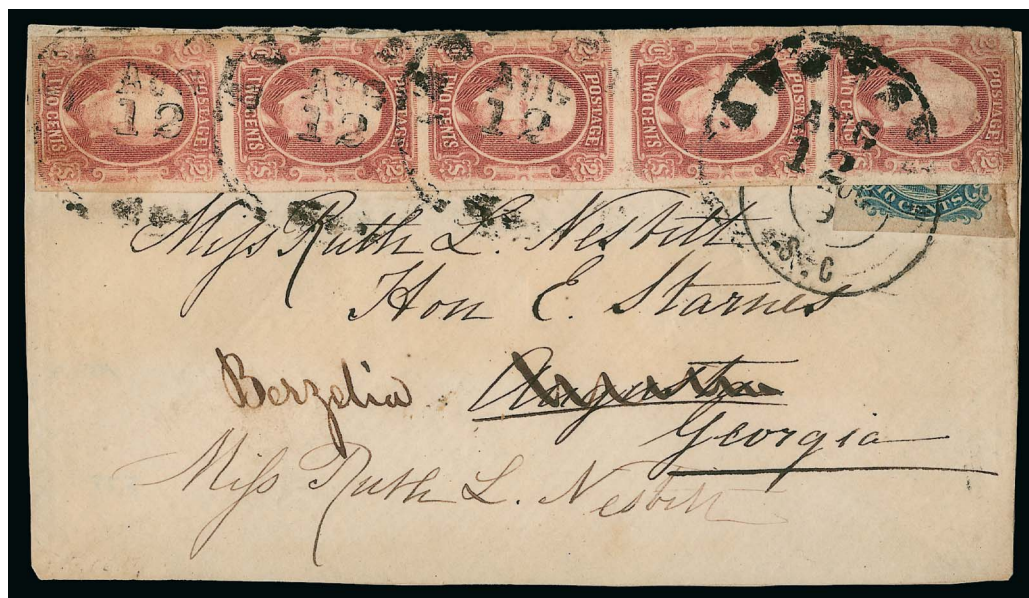 TWO CENTS POSTAGE TWO CENTS POSTAGE TWO CENTS POSTAGE TWO CENTS POSTAGE TWO CENTS POSTAGE
AUG 12 AUG 12 AUG 12 AUG 12
CENTS
S. C
Miss Ruth L. Nesbitt
Hon E. Starnes
Berzelia Augusta
Georgia
Miss Ruth L. Nesbitt